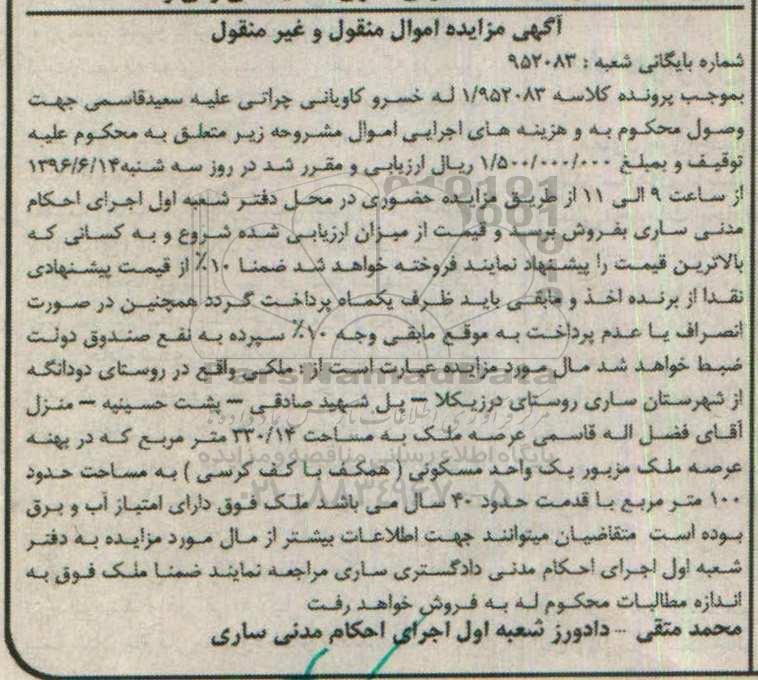 آگهی مزایده اموال منقول و غیر منقول
شماره بایگانی شعبه : ۹۵۲۰۸۳
بموجب پرونده کلاسه ۱/۹۵۲۰۸۳ له خسرو کاویانی چراتی علیه سعیدقاسمی جهت
وصول محکوم به و هزینه های اجرایی اموال مشروحه زیر متعلق به محکوم علیه
توقیف و بمبلغ ۱/۵۰۰/۰۰۰/۰۰۰ ریال ارزیابی و مقرر شد در روز سه شنبه۱۳۹۶/۶/۱۴
از ساعت ۹ الی ۱۱ از طریق مزایده حضوری در محل دفتر شعبه اول اجرای احکام
مدنی ساری بفروش برسد و قیمت از میزان ارزیابی شده شروع و به کسانی که
بالاترین قیمت را پیشنهاد نمایند فروخته خواهد شد ضمنا ۱۰٪ از قیمت پیشنهادی
نقدا از برنده اخذ و مابقی باید ظرف یکماه پرداخت گردد همچنین در صورت
انصراف یا عدم پرداخت به موقع مابقی وجه ۱۰٪ سپرده به نفع صندوق دولت
ضبط خواهد شد مال مورد مزایده عبارت است از : ملکی واقع در روستای دودانگه
از شهرستان ساری روستای درزیکلا – پل شهید صادقی – پشت حسینیه – منزل
آقای فضل اله قاسمی عرصه ملک به مساحت ۳۳۰/۱۴ متر مربع که در پهنه
عرصه ملک مزبور یک واحد مسکونی ( همکف با کف کرسی ) به مساحت حدود
۱۰۰ متر مربع با قدمت حدود ۴۰ سال می باشد ملک فوق دارای امتیاز آب و برق
بوده است متقاضیان میتوانند جهت اطلاعات بیشتر از مال مورد مزایده به دفتر
شعبه اول اجرای احکام مدنی دادگستری ساری مراجعه نمایند ضمنا ملک فوق به
اندازه مطالبات محکوم له به فروش خواهد رفت
محمد متقی – دادورز شعبه اول اجرای احکام مدنی ساری
ParsNamadData
پایگاه اطلاع رسانی مناقصه و مزایده